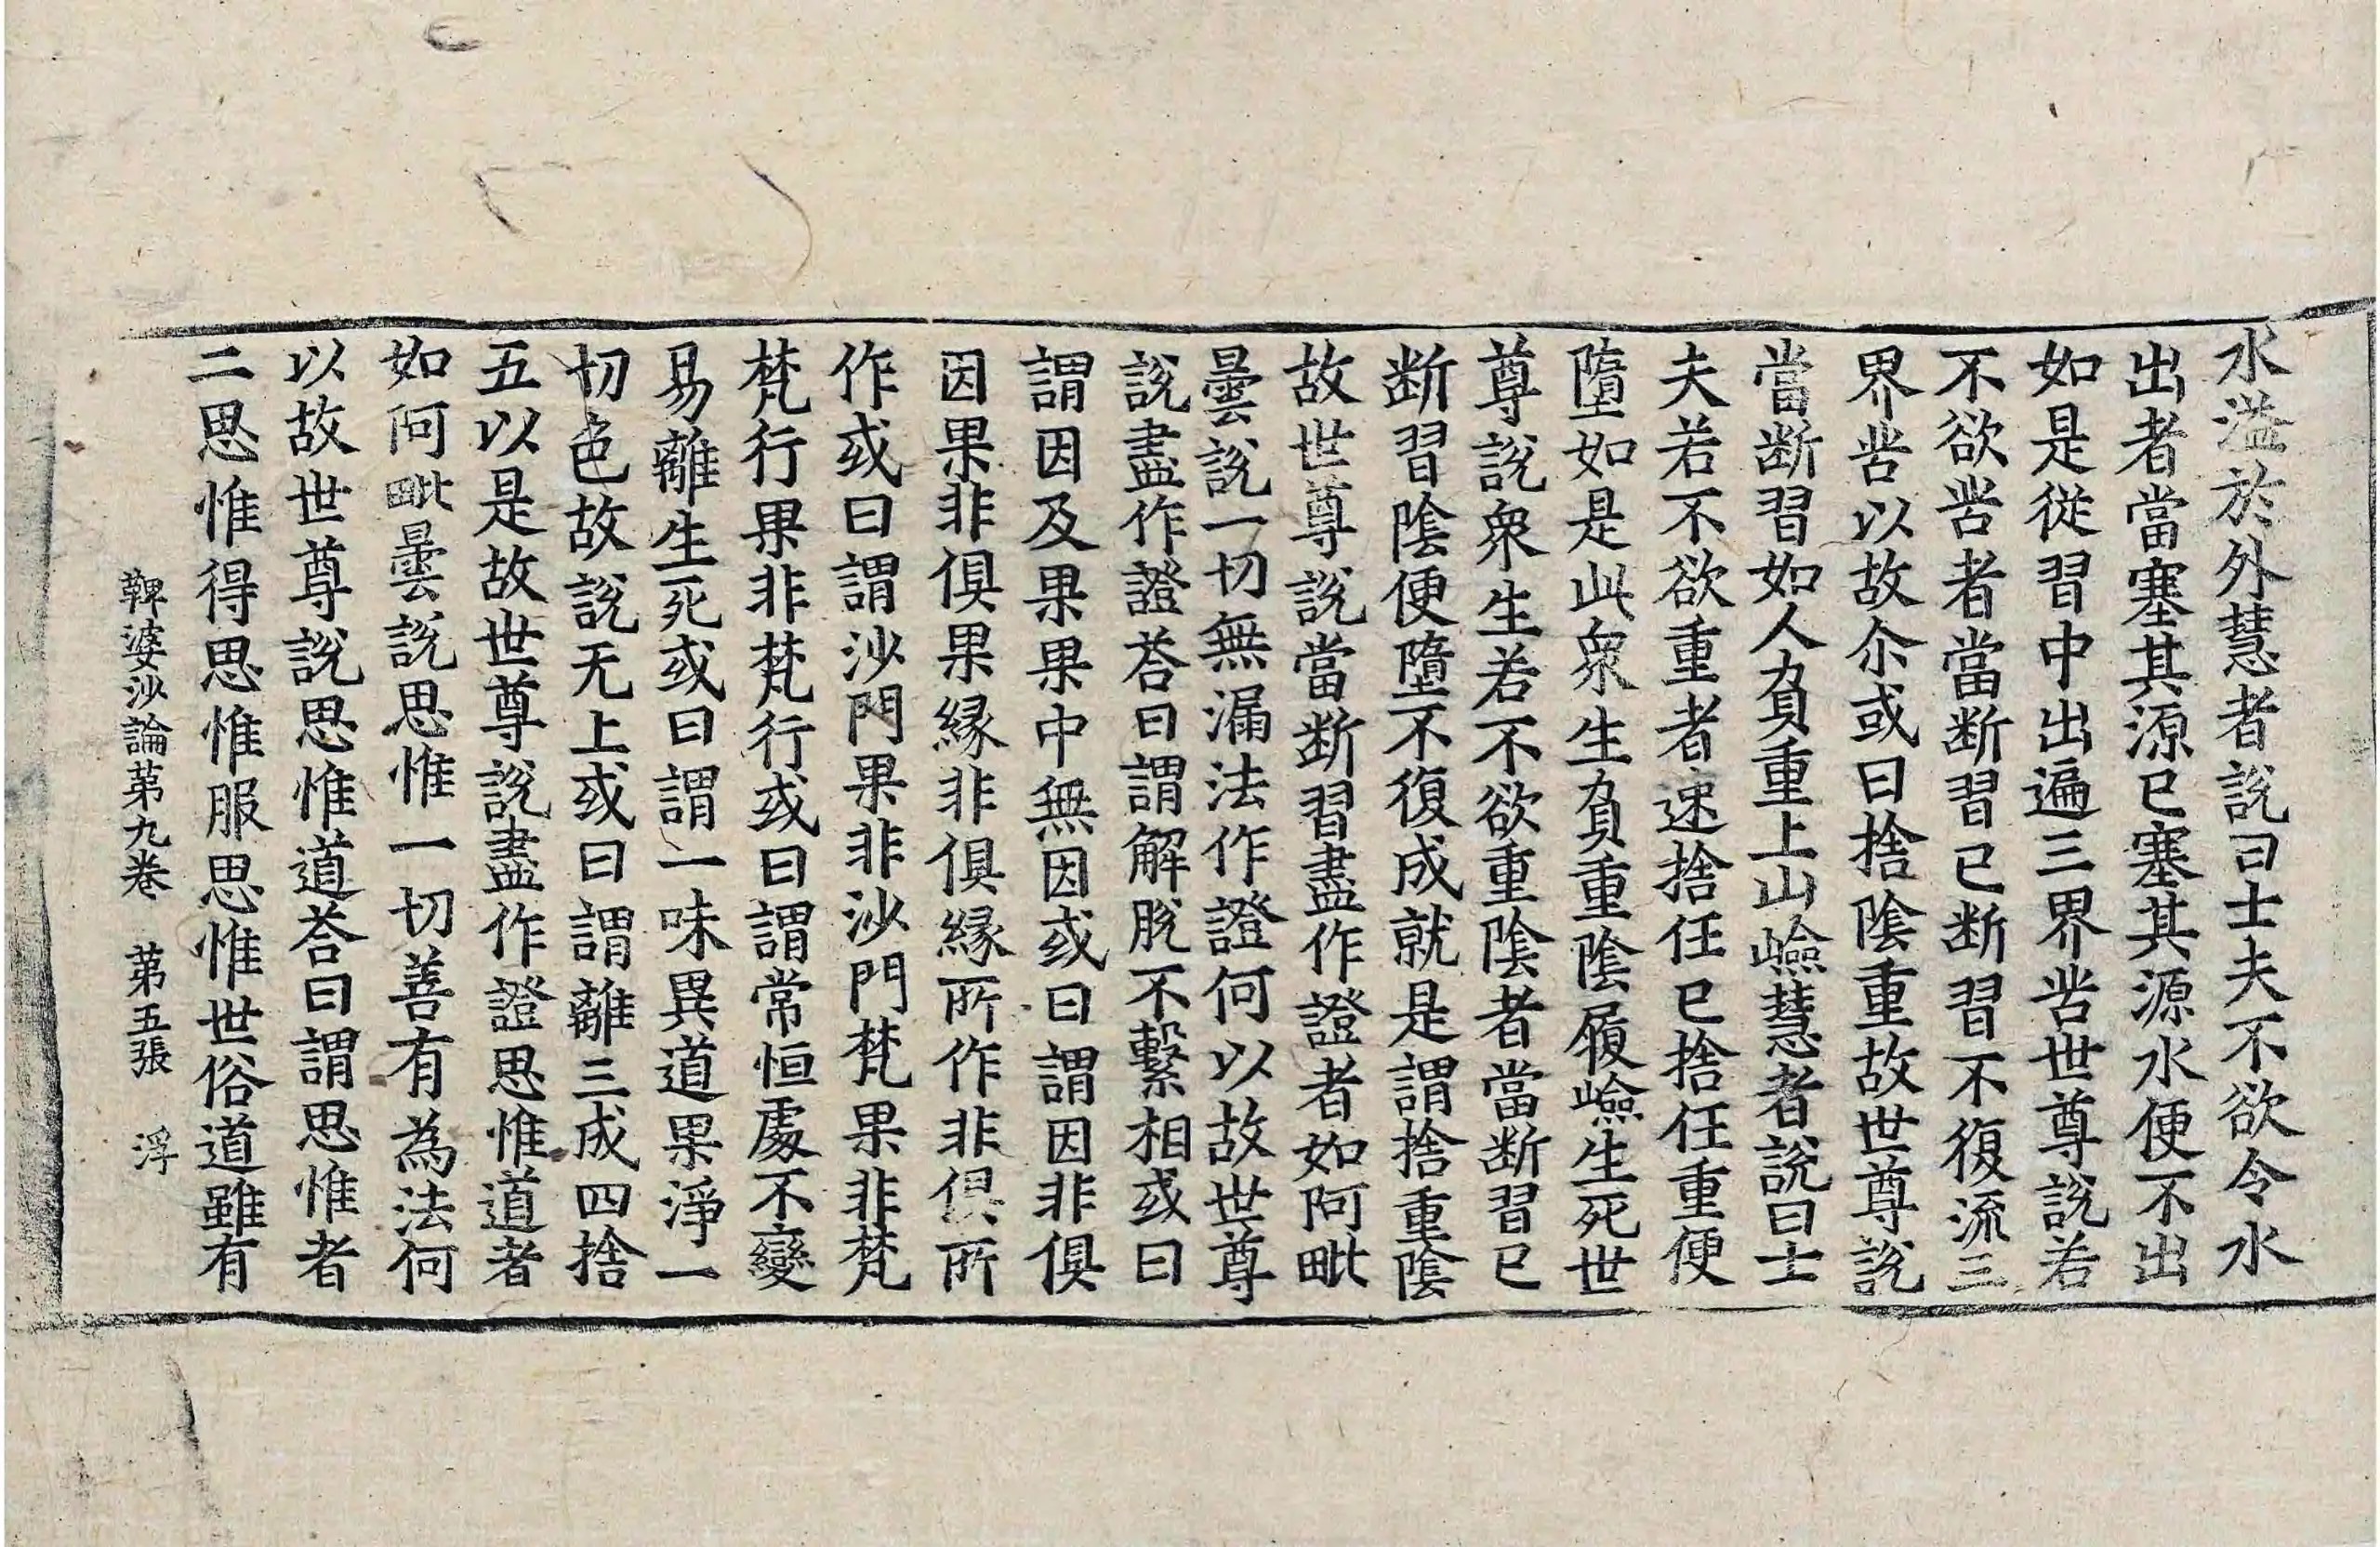 水溢於外慧者説曰士夫不欲令水
出者當塞其源已塞其源水便不出
如是從習中出遍三界苦世尊説若
不欲苦者當断習已断習不復流三
界苦以故尒或曰捨陰重故世尊説
當断習如人負重上山嶮慧者説曰士
夫若不欲重者速捨任已捨任重便
墮如是此衆生負重陰履嶮生死世
尊説衆生若不欲重陰者當断習已
断習陰便墮不復成就是謂捨重陰
故世尊説當断習盡作證者如阿毗
曇説一切無漏法作證何以故世尊
説盡作證荅曰謂解脫不繫相或曰
謂因及果果中無因或曰謂因非俱
因果非俱果縁非俱縁所作非俱所
作或曰謂沙門果非沙門梵果非梵
梵行果非梵行或曰謂常恒處不變
易離生死或曰謂一味異道果淨一
切色故説无上或曰謂離三成四捨
五以是故世尊説盡作證思惟道者
如阿毗曇説思惟一切善有為法何
以故世尊説思惟道荅曰謂思惟者
二思惟得思惟服思惟世俗道雖有
鞞婆沙論苐九卷　苐五張　浮